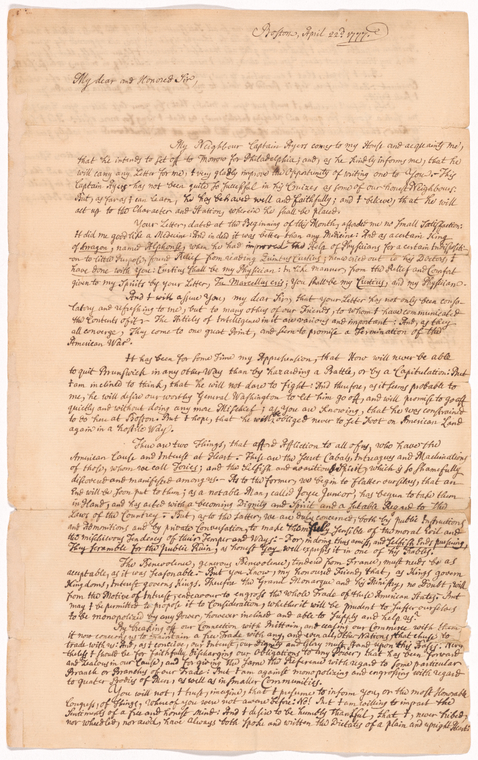 Boston, April 22d. 1777.
My dear and Honored Sir,
My Neighbour Captain Ayers comes to my House and acquaints me,
that he intends to set of to Morrow for Philadelphia; and, as he kindly informs me, that he
will carry any Letter for me; I very gladly improve the Opportunity of writing one to You. This
Captain Ayers has not been quite so successful in his Cruizes as some of our honest Neighbours.
But, as far as I can learn, he has behaved well and faithfully; and I believe, that he will
act up to the Character and Station, wherein he shall be placed.
Your Letter, dated at the Beginning of this Month, afforded me no small Satisfaction:
It did me good like a Medicine And indeed it was better than any Medicine: And as a certain King
of Arragon, named Alphonse, when he had improved the Help of Physicians for a certain Indisposition
to little Purpose, found Relief from reading Quintus Curtius, and cried out to his Doctors, I
have done with You: Curtius shall be my Physician: In like manner, from the Relief and Comfort
given to my Spirits by your Letter, Tu Marcellus eris; You shall be my Curtius, and my Physician.
And I will assure You, my dear Sir, that your Letter has not only been conso-
latory and refreshing to me; but to many others of our Friends, to whom I have communicated
the Contents of it. The Articles of Intelligence in it are various and important: And, as they
all converge, They come to one great Point, and seem to promise a Termination of the
American War.
It has been for some Time my Apprehension, that How will never be able
to quit Brunswick in any other Way than by hazarding a Battle, or by a Capitulation: But
I am inclined to think, that he will not dare to fight: And therefore, as it seems probable to
me, he will desire our worthy General Washington to let him go off, and will promise to go off
quietly and without doing any more Mischief; as You are knowing, that he was constrained
to do here at Boston. But I hope, that he will be obliged never to set Foot on American Land
again in a hostile Way.
There are two Things, that afford Affliction to all of us, who have the
American Cause and Interest at Heart. These are the secret Cabals, Intrigues and Machinations
of those, whom we call Tories; and the selfish and avaritious Spirit, which is so shamefully
discovered and manifested among us. As to the former, we begin to flatter ourselves, that an
End will be soon put to them; as a notable Man, called Joyce Junior, has begun to take them
in Hand, and has acted with a becoming Dignity and Spirit and a suitable Regard to the
Laws of the Country. But, as to the latter, we are endeavouring, both by public Instructions
and Admonitions and by private Conversation, to make them fully sensible of the moral Evil and
the mischievous Tendency of their Temper and Ways: For, indeed, thus mean and selfish Ends pursuing,
They scramble for the public Ruin; as honest Gay well expresses it in one of his Fables.
The Benevolence, generous Benevolence, tendered from France, must needs be as
acceptable, as it was seasonable. But You know, my Honoured Friend, that, as Kings govern
Kingdoms, Interest governs Kings. Therefore the Grand Monarque and his Ministry, no Doubt, will
from the Motive of Interest endeavour to engross the whole Trade of these American States. But
may I be permitted to propose it to Consideration, whether it will be prudent to suffer ourselves
to be monopolized by any Power, however inclined and able to supply and help us.
By breaking off our Connection with Brittain and ceasing our Commerce with them,
it now concerns us to maintain a free Trade with any, and even all, other Nations that chuse to
trade with us: And, as I conceive, our Interest, our Dignity and Glory may stand upon this Basis. Never-
theless I should be for faithfully discharging our Obligations to any Power, that has been forward
and zealous in our Cause; and for giving the same the Preference with regard to some particular
Branch or Branches of our Trade: But I am against monopolizing and engrossing with regard
to greater Bodies of Men, as well as in smaller Communities.
You will not, I trust, imagine, that I presume to inform You, or the most Honorable
Congress, of Things, whereof You were not aware before: No! But I am willing to impart the
Sentiments of a free and honest Mind: And I desire to be humbly thankful, that I, never bribed,
nor wheedled, nor awed, have always both spoke and written the Dictates of a plain and upright Heart.